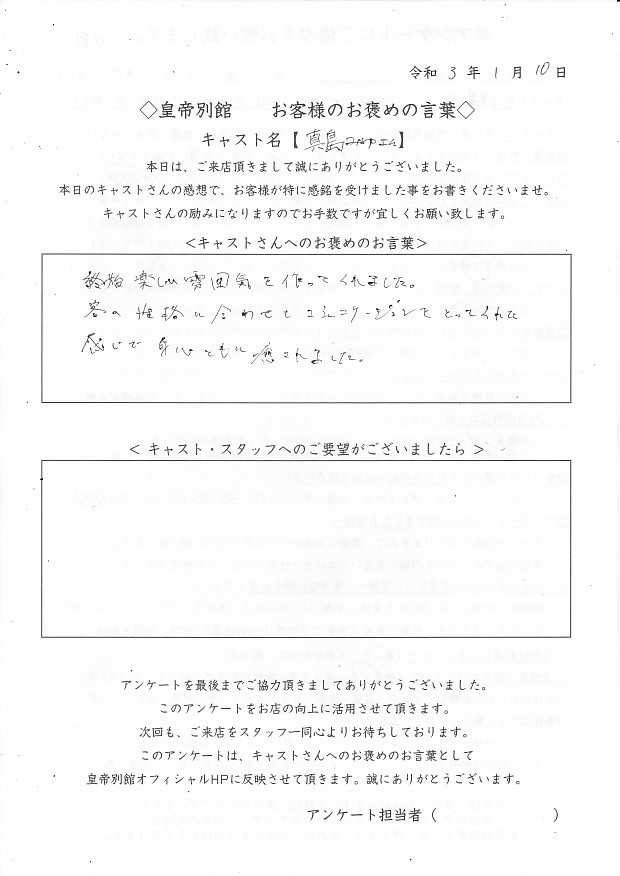 令和 3 年 1 月 10 日
◇皇帝別館　　お客様のお褒めの言葉◇
キャスト名【 真島 】
本日は、ご来店頂きまして誠にありがとうございました。
本日のキャストさんの感想で、お客様が特に感銘を受けました事をお書きくださいませ。
キャストさんの励みになりますのでお手数ですが宜しくお願い致します。
＜キャストさんへのお褒めのお言葉＞
終始楽しい雰囲気を作ってくれました。
客の性格に合わせてコミュニケーションをとってくれた
感じで身心ともに癒されました。
＜ キャスト・スタッフへのご要望がございましたら ＞
アンケートを最後までご協力頂きましてありがとうございました。
このアンケートをお店の向上に活用させて頂きます。
次回も、ご来店をスタッフ一同心よりお待ちしております。
このアンケートは、キャストさんへのお褒めのお言葉として
皇帝別館オフィシャルHPに反映させて頂きます。誠にありがとうございます。
アンケート担当者（　　　　　　　）